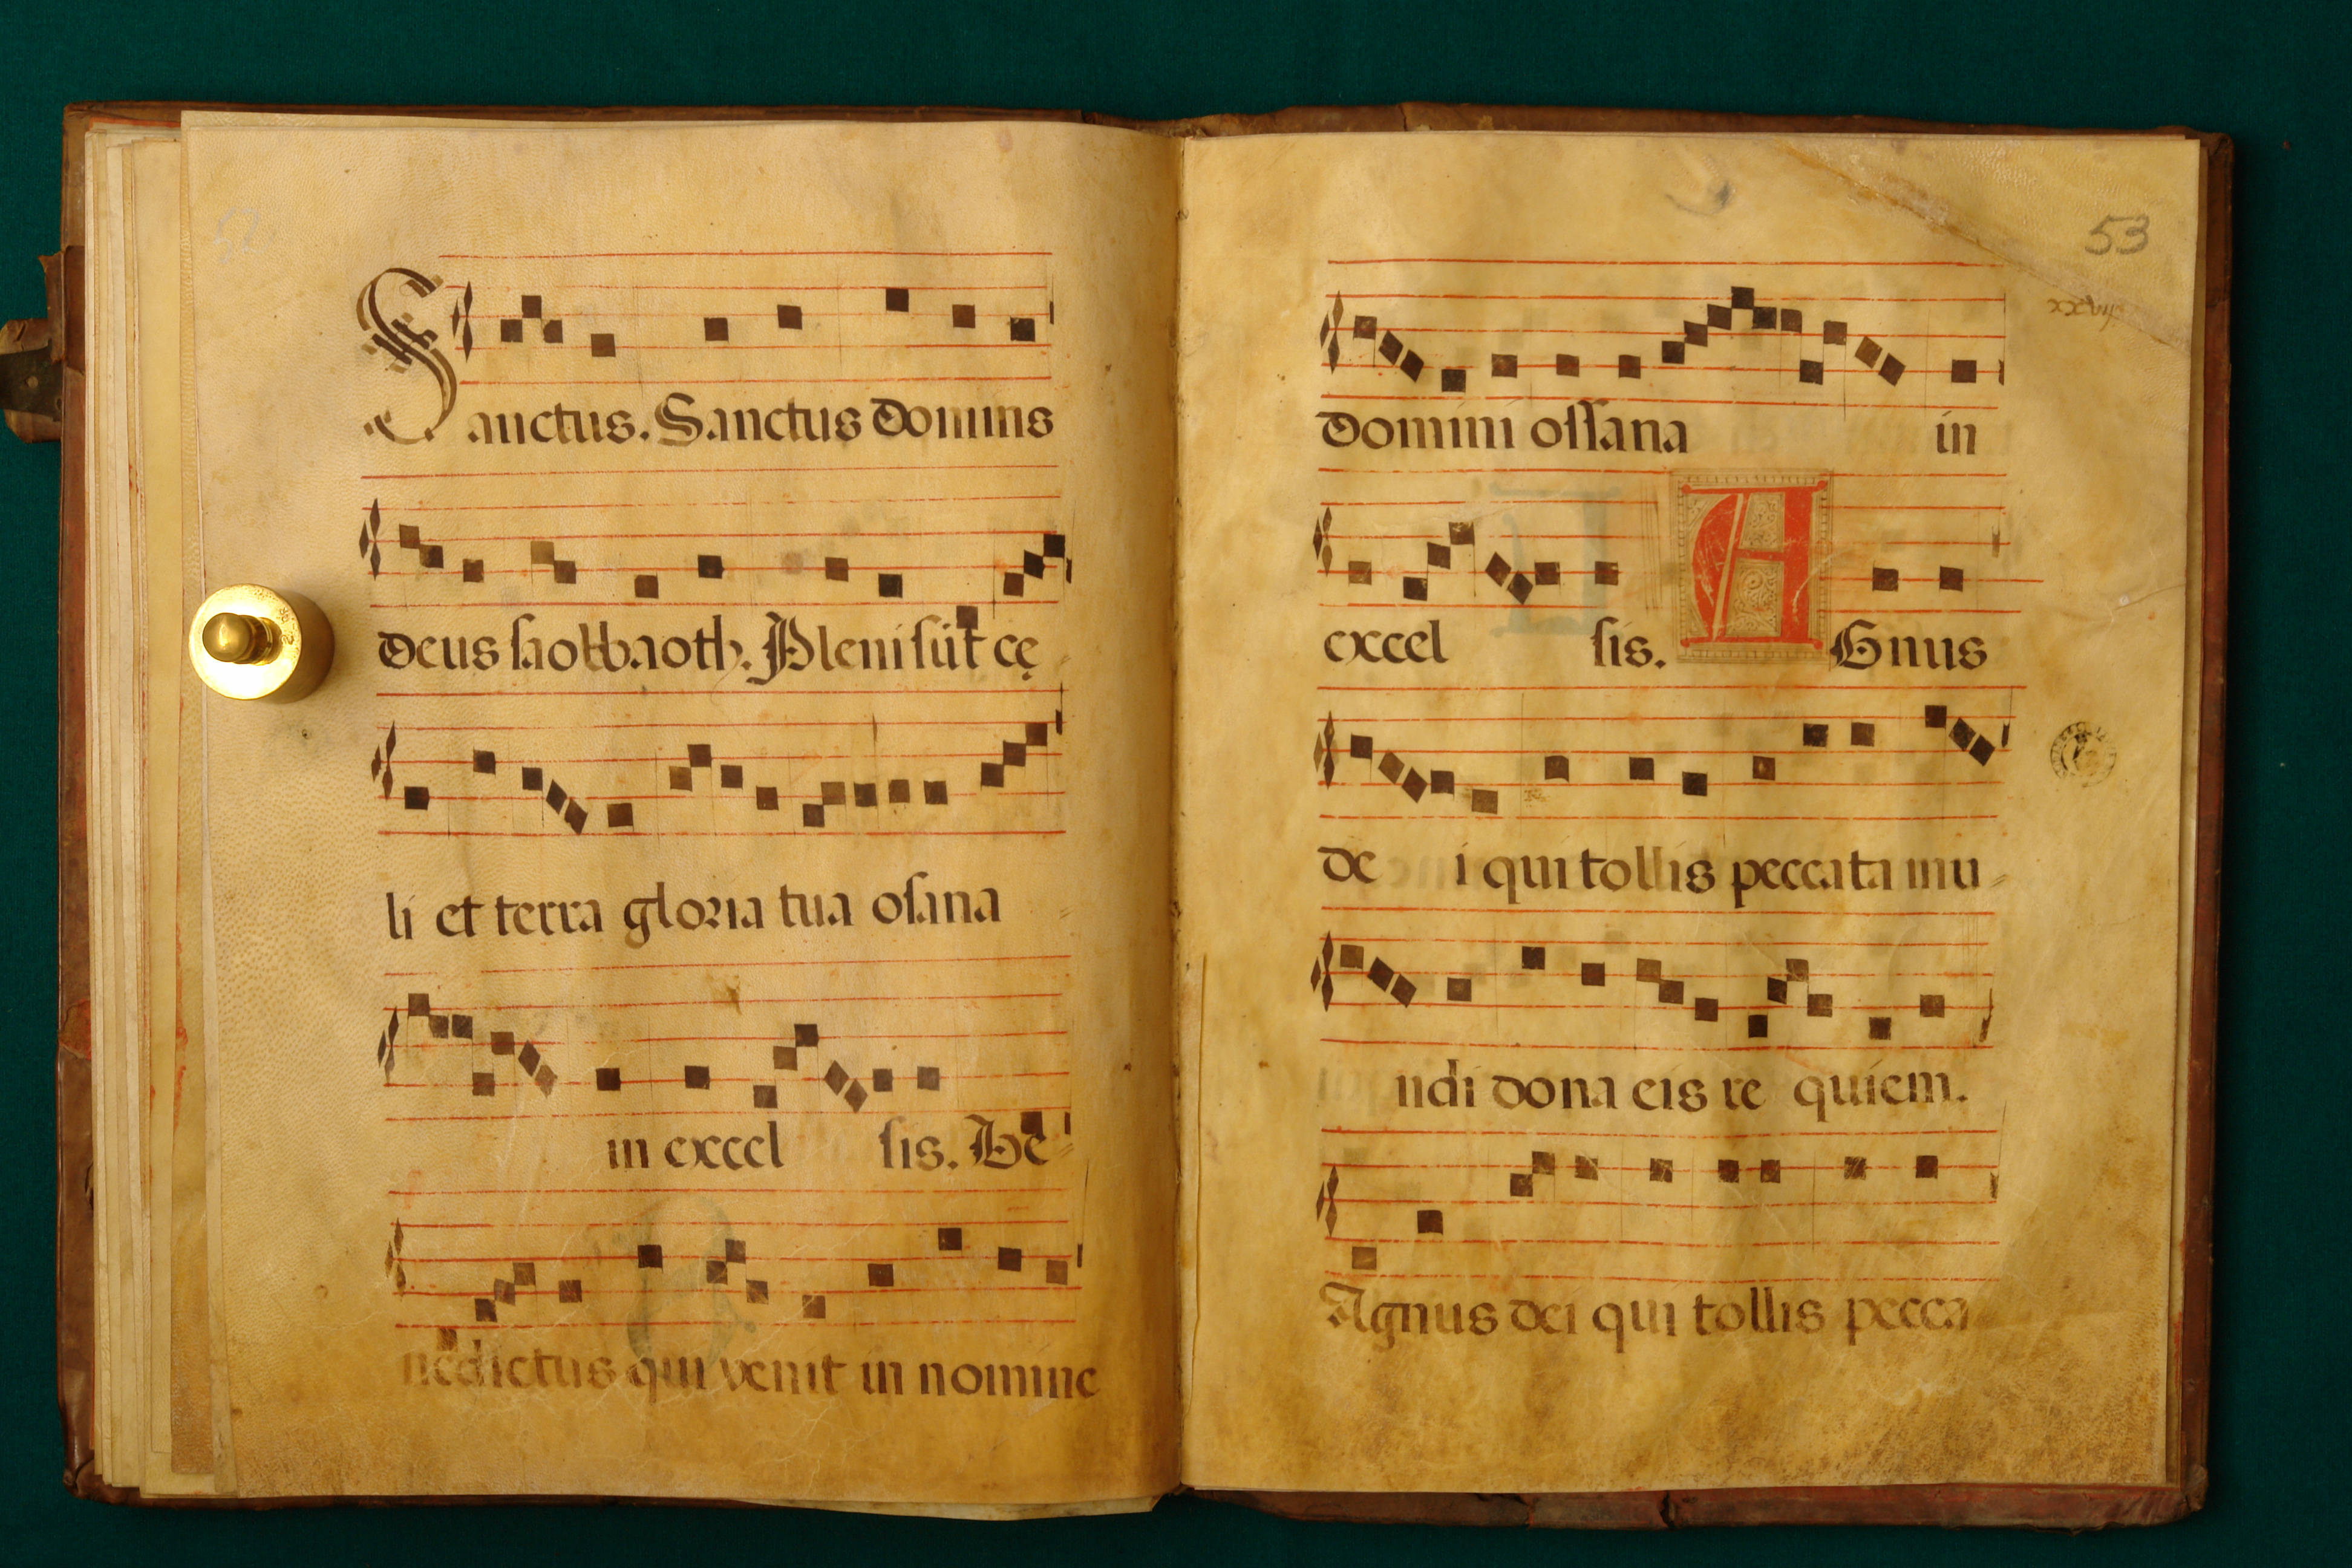 52
Sanctus. Sanctus Dominus
Deus saobbaoth. Pleni sūt cę
li et terra gloria tua osana
in excel sis. Be
nedictus qui venit in nomine
53
xxviij
Domini ossana in
excel sis. AGnus
de i qui tollis peccata mu
ndi dona eis re quiem.
Agnus dei qui tollis pecca